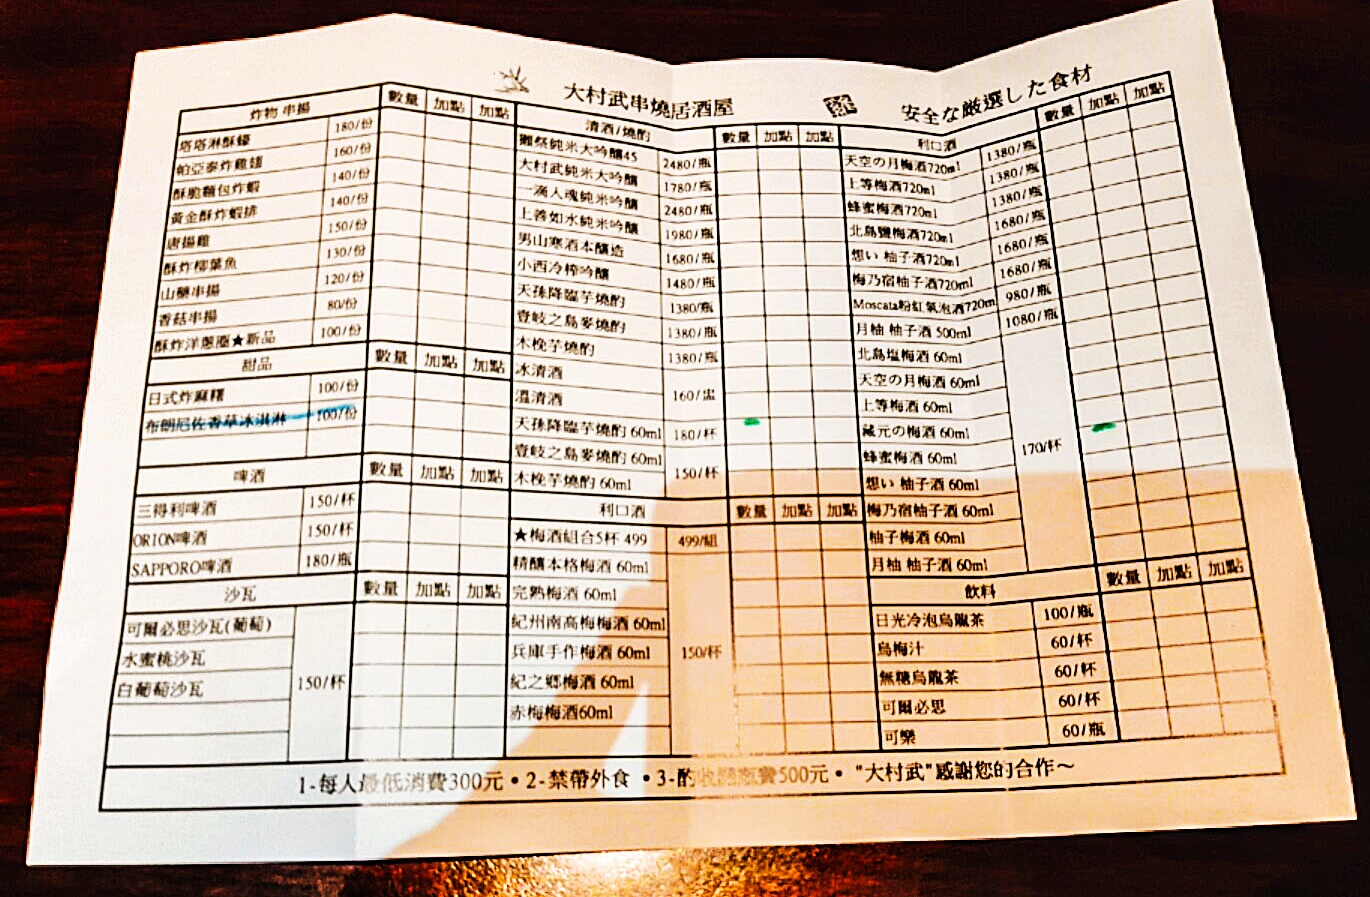 大村武串燒居酒屋
安全な厳選した食材
炸物 串揚 數量 加點 加點
塔塔淋酥蠔 180/份
帕亞泰炸雞翅 160/份
酥脆麵包炸蝦 140/份
黃金酥炸蝦排 140/份
唐揚雞 150/份
酥炸柳葉魚 130/份
山藥串揚 120/份
香菇串揚 80/份
酥炸洋蔥圈★新品 100/份
甜品 數量 加點 加點
日式炸麻糬 100/份
布朗尼佐香草冰淇淋 100/份
啤酒 數量 加點 加點
三得利啤酒 150/杯
ORION啤酒 150/杯
SAPPORO啤酒 180/瓶
沙瓦 數量 加點 加點
可爾必思沙瓦(葡萄)
水蜜桃沙瓦
白葡萄沙瓦
150/杯
清酒/燒酌 數量 加點 加點
獺祭純米大吟釀45 2480/瓶
大村武純米大吟釀 1780/瓶
一滴入魂純米吟釀 2480/瓶
上善如水純米吟釀 1980/瓶
男山寒酒本釀造 1680/瓶
小西冷榨吟釀 1480/瓶
天孫降臨芋燒酌 1380/瓶
壹岐之島麥燒酌 1380/瓶
木挽芋燒酌 1380/瓶
冰清酒
溫清酒
160/盅
天孫降臨芋燒酌 60ml 180/杯
壹岐之島麥燒酌 60ml
木挽芋燒酌 60ml
150/杯
利口酒 數量 加點 加點
★梅酒組合5杯 499 499/組
精釀本格梅酒 60ml
完熟梅酒 60ml
紀州南高梅梅酒 60ml
兵庫手作梅酒 60ml
紀之鄉梅酒 60ml
赤梅梅酒60ml
150/杯
利口酒 數量 加點 加點
天空の月梅酒720ml 1380/瓶
上等梅酒720ml 1380/瓶
蜂蜜梅酒720ml 1380/瓶
北島鹽梅酒720ml 1680/瓶
想い 柚子酒720ml 1680/瓶
梅乃宿柚子酒720ml 1680/瓶
Moscata粉紅氣泡酒720m 980/瓶
月柚 柚子酒 500ml 1080/瓶
北島塩梅酒 60ml
天空の月梅酒 60ml
上等梅酒 60ml
藏元の梅酒 60ml
蜂蜜梅酒 60ml
想い 柚子酒 60ml
梅乃宿柚子酒 60ml
柚子梅酒 60ml
月柚 柚子酒 60ml
170/杯
飲料 數量 加點 加點
日光冷泡烏龍茶 100/瓶
烏梅汁 60/杯
無糖烏龍茶 60/杯
可爾必思 60/杯
可樂 60/瓶
1-每人最低消費300元•2-禁帶外食 •3-酌收開瓶費500元• "大村武"感謝您的合作～